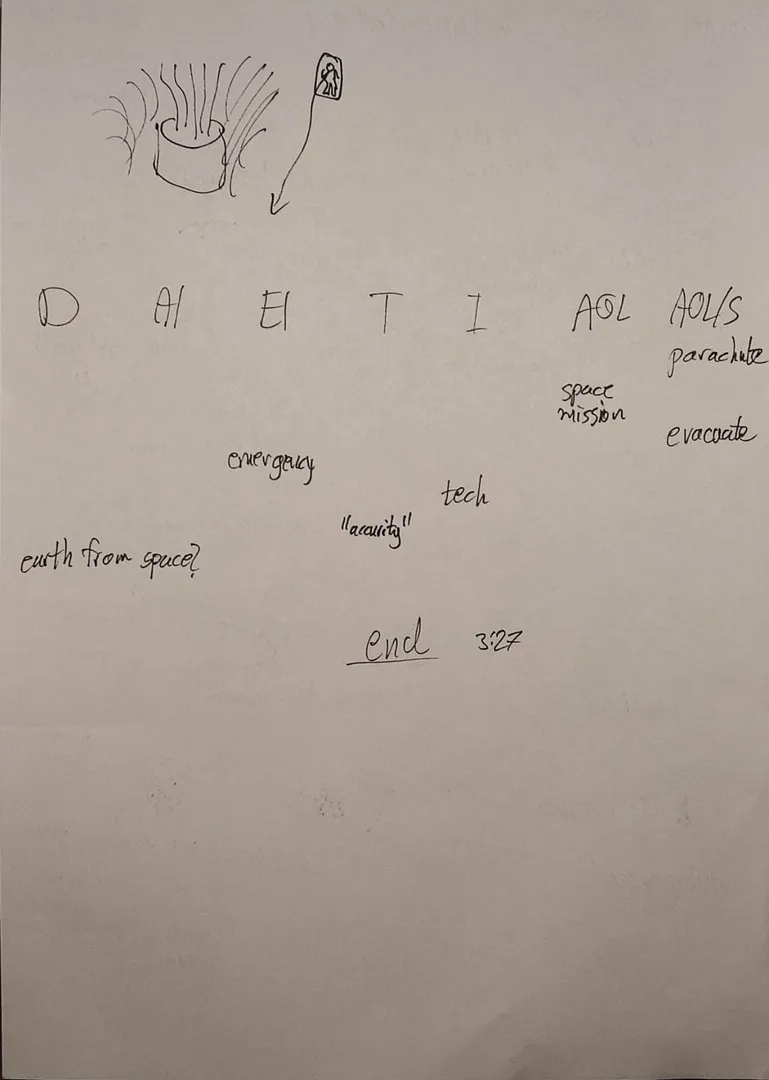 D AI EI T I AOL AOL/S
parachute
space
mission
evacuate
emergency
tech
"accurity"
earth from space?
end 3:27